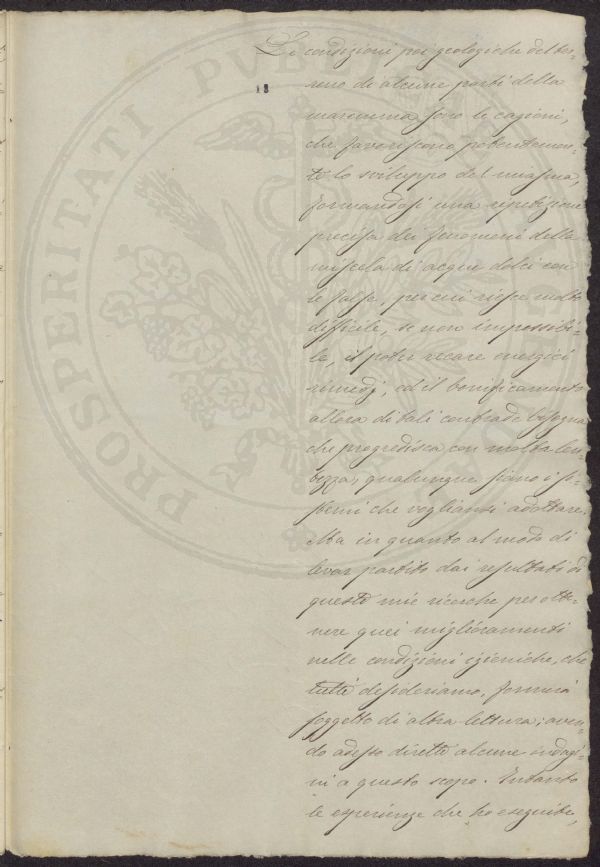 Le condizioni poi geologiche del ter-
reno di alcune parti della
maremma sono le cagioni,
che favoriscono potentemen-
te lo sviluppo del miasma,
formandosi una ripetizione
precisa dei fenomeni della
miscela di acque dolci con
le salse, per cui riesce molto
difficile, se non impossibi-
le, il poter recare energici
rimedj, ed il bonificamento
allora di tali contrade bisogna
che progredisca con molta len-
tezza, qualunque siano i si-
stemi che voglionsi adottare.
Ma in quanto al modo di
levar partito dai resultati di
queste mie ricerche per otte-
nere quei miglioramenti
nelle condizioni igieniche, che
tutti desideriamo, formerà
soggetto di altra lettura; aven-
do adesso dirette alcune indagi-
ni a questo scopo. Intanto
le esperienze che ho eseguite,
18
PROSPERITATI PUBLICAE